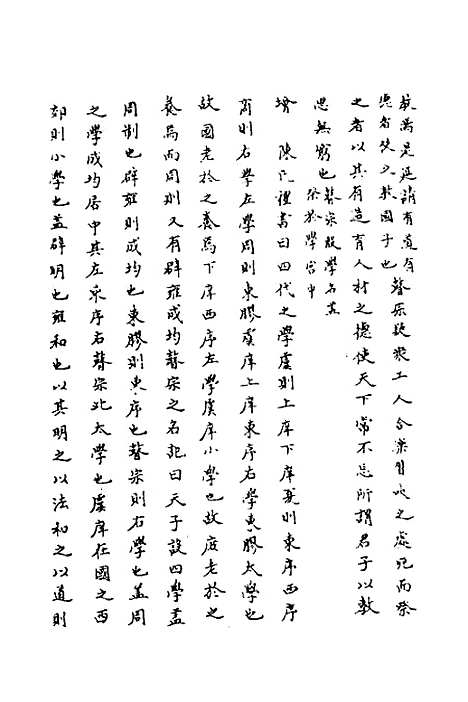 焉是延請有道有
德者使之教國子也
瞽宗衆工人合樂習之處死而祭
之者以其有造育人材之德使天下常不忘所謂君子以教
思無窮也
瞽宗殷學名蓋
祭於學宮中
增 陳氏禮書曰四代之學虞則上庠下庠夏則東序西序
商則右學左學周則東膠虞庠上庠東序右學東膠太學也
故國老於之養焉下庠西序左學虞庠小學也故庶老於之
養焉而周則又有辟雍成均瞽宗之名記曰天子設四學蓋
周制也辟雍則成均也東膠則東序也瞽宗則右學也蓋周
之學成均居中其左東序右瞽宗此太學也虞庠在國之西
郊則小學也蓋辟明也雍和也以其明之以法和之以道則